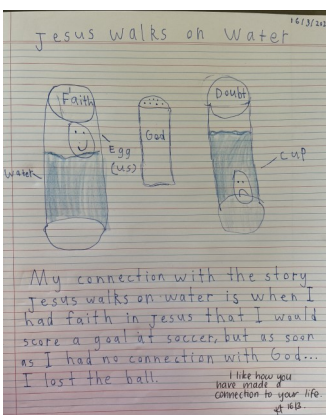 16/3/202
Jesus walks on Water
Faith
Doubt
God
Egg
(us)
Water
Cup
My connection with the story
Jesus walks on water is when I
had faith in Jesus that I would
score a goal at soccer, but as soon
as I had no connection with God...
I lost the ball.
I like how you
have made a
connection to your life.
16/3.